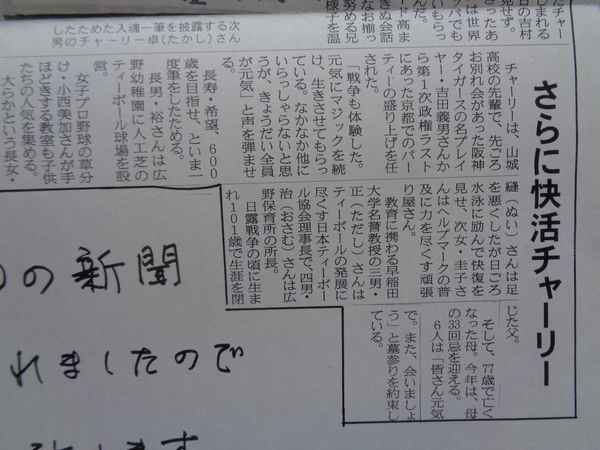 さらに快活チャーリー
しまれる
日の吉村
は世界
いもらっ
ード高ま
きぬ会話
なお揃っ
努める兄
様子を温
したためた入魂一筆を披露する次
男のチャーリー卓(たかし)さん
チャーリーは、山城
高校の先輩で、先ごろ
お別れ会があった阪神
タイガースの名プレイ
ヤー・吉田義男さんか
ら第1次政権ラスト
にあった京都でのパー
ティーの盛り上げを任
された。
「戦争も体験した。
元気にマジックを続
け、生きさせてもらっ
ている。なかなか他に
いらっしゃらないと思
うが、きょうだい全員
が元気」と声を弾ませ
る。
長寿・希望、600
歳を目指せ、といま一
度筆をしたためる。
長男・裕さんは広
野幼稚園に人工芝の
ティーボール球場を設
営。
女子プロ野球の草分
け・小西美加さんが手
ほどきする教室も子供
たちの人気を集める。
大らかという長女・
縫(ぬい)さんは足
を悪くしたが日ごろ
水泳に励んで快復を
見せ、次女・圭子さ
んはヘルプマークの普
及に力を尽くす頑張
り屋さん。
教育に携わる早稲田
大学名誉教授の三男・
正(ただし)さんは
ティーボールの発展に
尽くす日本ティーボー
ル協会理事長で、四男・
治(おさむ)さんは広
野保育所の所長。
日露戦争の頃に生ま
れ101歳で生涯を閉
じた父。
そして、77歳で亡く
なった母。今年は、母
の33回忌を迎える。
6人は「皆さん元気
で。また、会いましょ
う」と墓参りを約束し
ている。
の新聞
れましたので